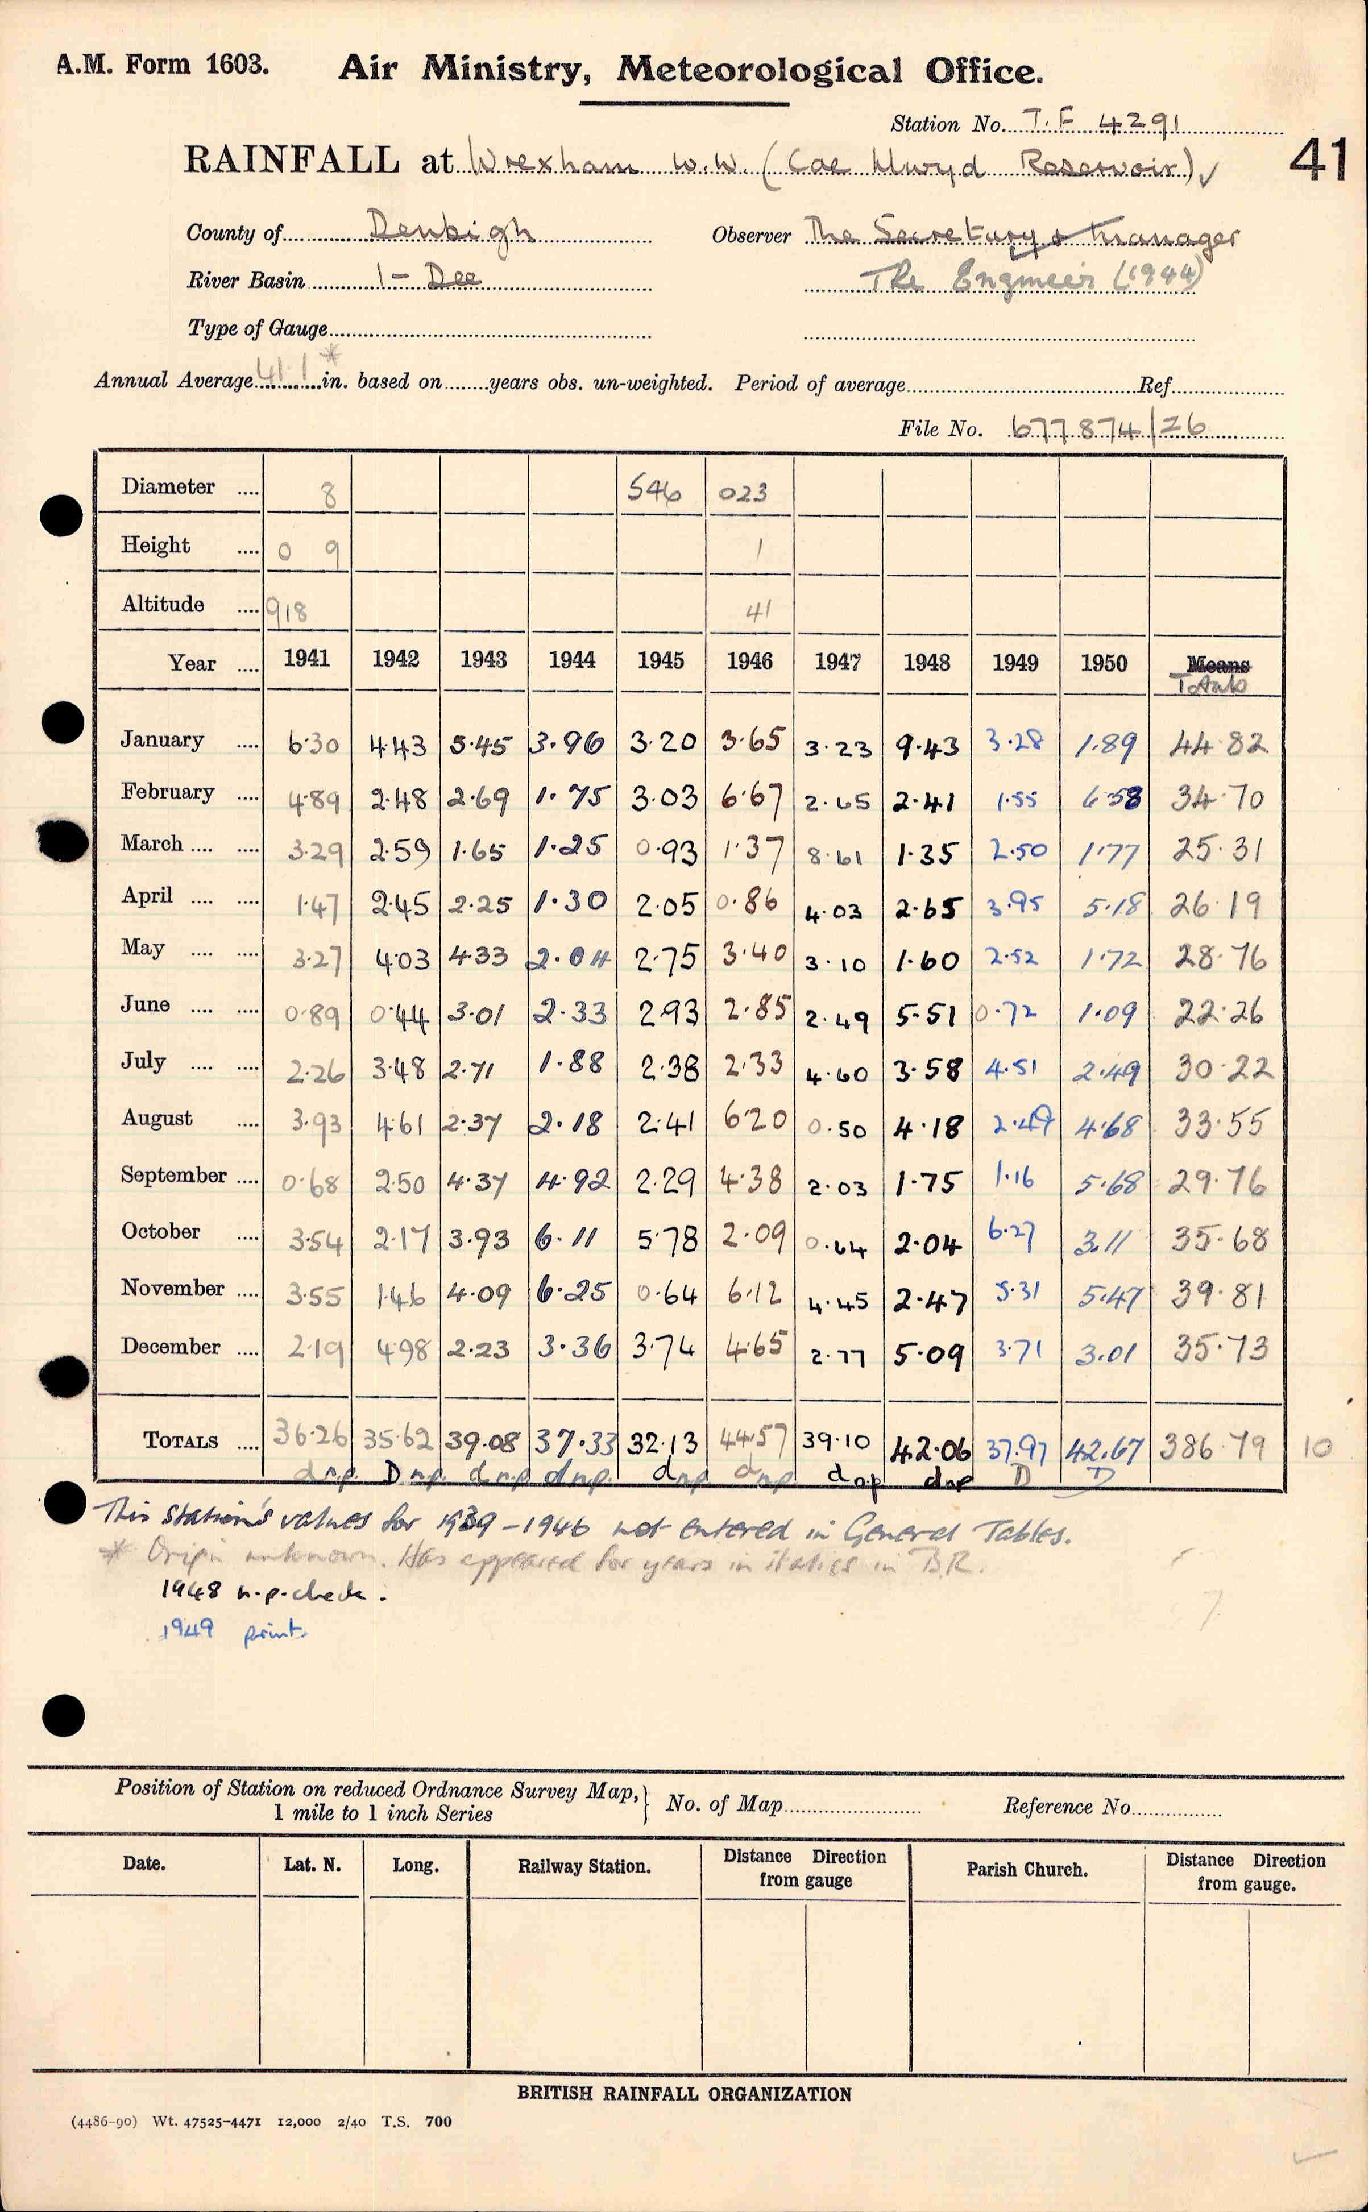 A.M. Form 1603. Air Ministry, Meteorological Office.
Station No. T.F 4291
RAINFALL at Wrexham W.W. (Cae Llwyd Reservoir) ✓ 41
County of Denbigh Observer The Secretary & Manager
River Basin 1 - Dee The Engineer (1944)
Type of Gauge
Annual Average 41.1* in. based on years obs. un-weighted. Period of average Ref.
File No. 677874/26
Diameter .... 8 546 023
Height .... 0 9 1
Altitude .... 918 41
Year .... 1941 1942 1943 1944 1945 1946 1947 1948 1949 1950 Means
Totals
January .... 6.30 4.43 5.45 3.96 3.20 3.65 3.23 9.43 3.28 1.89 44.82
February .... 4.89 2.48 2.69 1.75 3.03 6.67 2.65 2.41 1.55 6.58 34.70
March .... .... 3.29 2.59 1.65 1.25 0.93 1.37 8.61 1.35 2.50 1.77 25.31
April .... .... 1.47 2.45 2.25 1.30 2.05 0.86 4.03 2.65 3.95 5.18 26.19
May .... .... 3.27 4.03 4.33 2.04 2.75 3.40 3.10 1.60 2.52 1.72 28.76
June .... .... 0.89 0.44 3.01 2.33 2.93 2.85 2.49 5.51 0.72 1.09 22.26
July .... .... 2.26 3.48 2.71 1.88 2.38 2.33 4.60 3.58 4.51 2.49 30.22
August .... 3.93 4.61 2.37 2.18 2.41 6.20 0.50 4.18 2.49 4.68 33.55
September .... 0.68 2.50 4.37 4.92 2.29 4.38 2.03 1.75 1.16 5.68 29.76
October .... 3.54 2.17 3.93 6.11 5.78 2.09 0.64 2.04 6.27 3.11 35.68
November .... 3.55 1.46 4.09 6.25 0.64 6.12 4.45 2.47 5.31 5.47 39.81
December .... 2.19 4.98 2.23 3.36 3.74 4.65 2.77 5.09 3.71 3.01 35.73
TOTALS .... 36.26 35.62 39.08 37.33 32.13 44.57 39.10 42.06 37.97 42.67 386.79 10
d n.p. D n.p. d n.p. d n.p. d n.p. d n.p. d n.p. d n.p. D D
This station's values for 1939-1946 not entered in General Tables.
* Origin unknown. Has appeared for years in italics in B.R.
1948 n.p. check.
1949 print.
Position of Station on reduced Ordnance Survey Map,} No. of Map Reference No.
1 mile to 1 inch Series
Date. Lat. N. Long. Railway Station. Distance Direction from gauge Parish Church. Distance Direction from gauge.
BRITISH RAINFALL ORGANIZATION
(4486-90) Wt. 47525-4471 12,000 2/40 T.S. 700